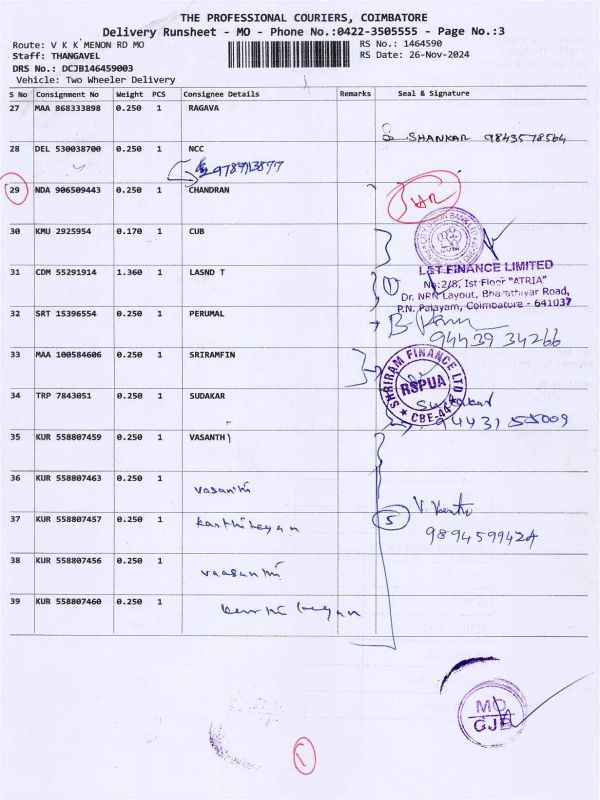 THE PROFESSIONAL COURIERS, COIMBATORE
Delivery Runsheet - MO - Phone No.:0422-3505555 - Page No.:3
Route: V K K MENON RD MO
RS No.: 1464590
Staff: THANGAVEL
RS Date: 26-Nov-2024
DRS No.: DCJB146459003
Vehicle: Two Wheeler Delivery
S No Consignment No Weight PCS Consignee Details Remarks Seal & Signature
27 MAA 868333898 0.250 1 RAGAVA
S SHANKAR 9843578564
28 DEL 530038700 0.250 1 NCC
29 NDA 906509443 0.250 1 CHANDRAN
30 KMU 2925954 0.170 1 CUB
CUB
31 CDM 55291914 1.360 1 LASND T
1
L&T FINANCE LIMITED
No:2/8, Ist Floor "ATRIA"
Dr. NRN Layout, Bharathiyar Road,
P.N. Palayam, Coimbatore - 641037
32 SRT 15396554 0.250 1 PERUMAL
94439 34266
33 MAA 100584606 0.250 1 SRIRAMFIN
SHRIRAM FINANCE LTD
RSPUA
CBE-44
34 TRP 7843051 0.250 1 SUDAKAR
Sudakar
35 KUR 558807459 0.250 1 VASANTH
36 KUR 558807463 0.250 1 vasanthi
37 KUR 558807457 0.250 1 karthikeyan
5
9894599424
38 KUR 558807456 0.250 1 vaasanthi
39 KUR 558807460 0.250 1
MO
CJB
1